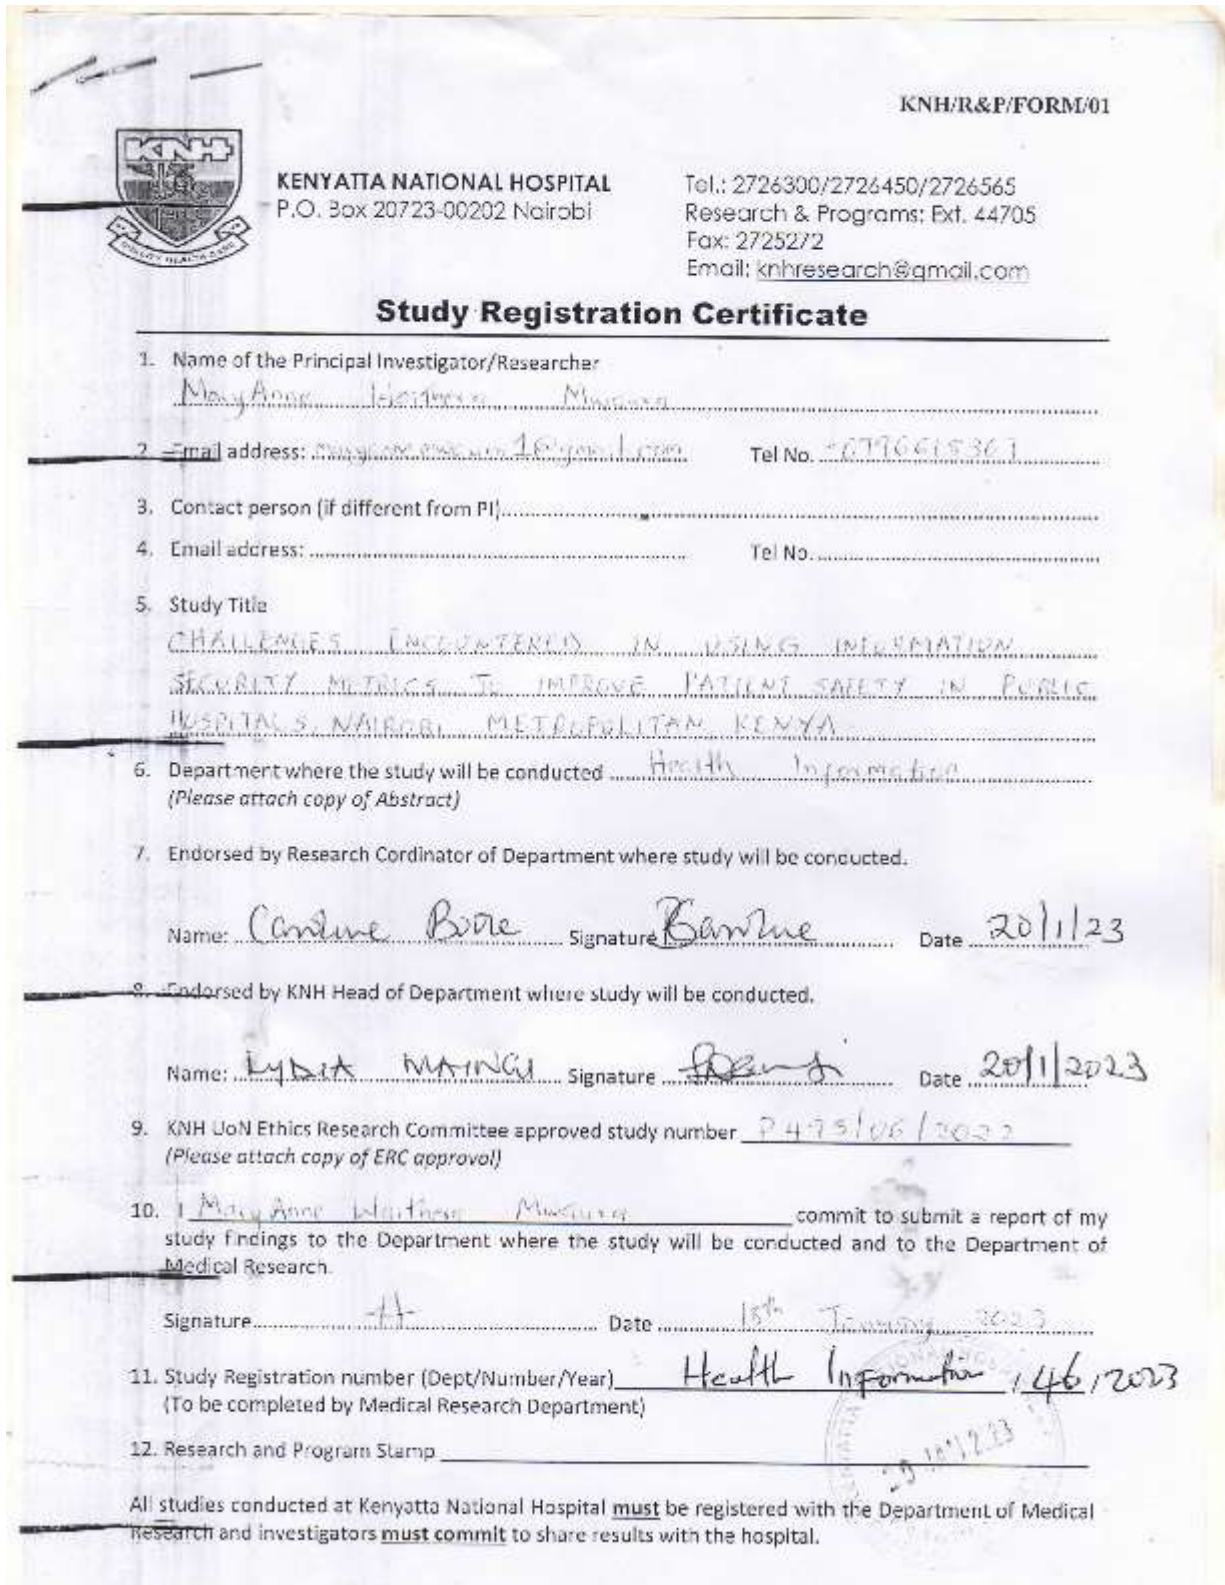 KNH/R&P/FORM/01
KNH
QUALITY HEALTH CARE
KENYATTA NATIONAL HOSPITAL
P.O. Box 20723-00202 Nairobi
Tel.: 2726300/2726450/2726565
Research & Programs: Ext. 44705
Fax: 2725272
Email: knhresearch@gmail.com
Study Registration Certificate
1. Name of the Principal Investigator/Researcher
MaryAnne Waithera Mwaura
2. Email address: Tel No.
3. Contact person (if different from PI)
4. Email address: Tel No.
5. Study Title
CHALLENGES ENCOUNTERED IN USING INFORMATION
SECURITY METRICS TO IMPROVE PATIENT SAFETY IN PUBLIC
HOSPITALS, NAIROBI METROPOLITAN, KENYA
6. Department where the study will be conducted Health Information
(Please attach copy of Abstract)
7. Endorsed by Research Cordinator of Department where study will be conducted.
Name: Signature Date 20/1/23
8. Endorsed by KNH Head of Department where study will be conducted.
Name: LYDIA MAINGI Signature Date 20/1/2023
9. KNH UoN Ethics Research Committee approved study number P475/06/2022
(Please attach copy of ERC approval)
10. I MaryAnne Waithera Mwaura commit to submit a report of my
study findings to the Department where the study will be conducted and to the Department of
Medical Research.
Signature Date January 2023
11. Study Registration number (Dept/Number/Year) Health Information / 46 / 2023
(To be completed by Medical Research Department)
12. Research and Program Stamp
All studies conducted at Kenyatta National Hospital must be registered with the Department of Medical
Research and investigators must commit to share results with the hospital.